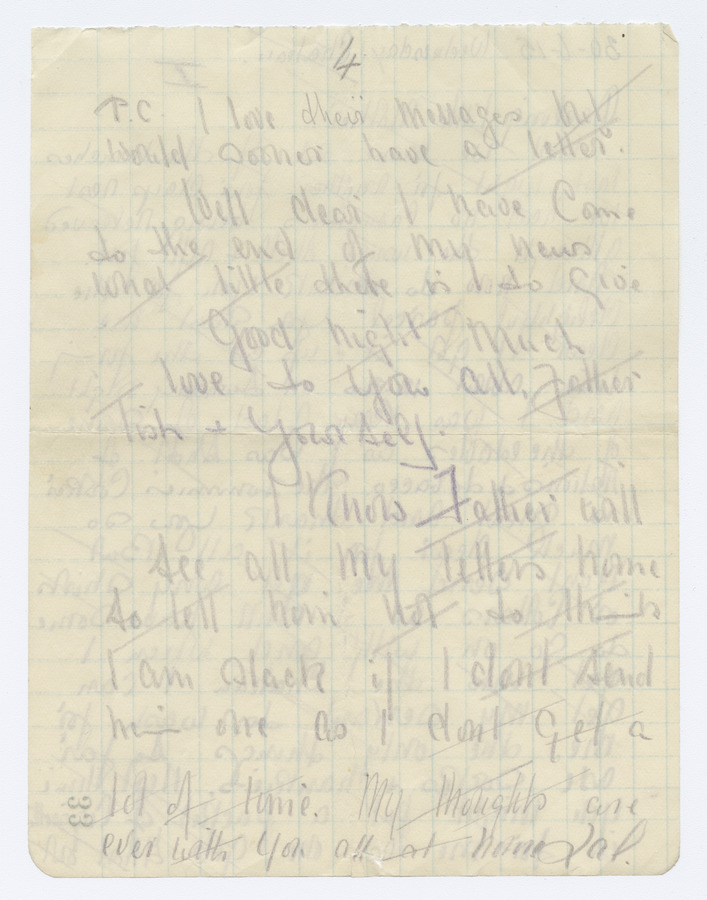 4
P.C I love their messages but
would sooner have a letter.
Well dear I have Come
to the end of my news
what little there is to Give
Good night Much
love to you all, Father
Tish + Yourself.
I Know Father will
see all my letters home
so tell him not to think
I am slack if I dont send
him one as I dont Get a
lot of time. My thoughts are
ever with you all at home
33